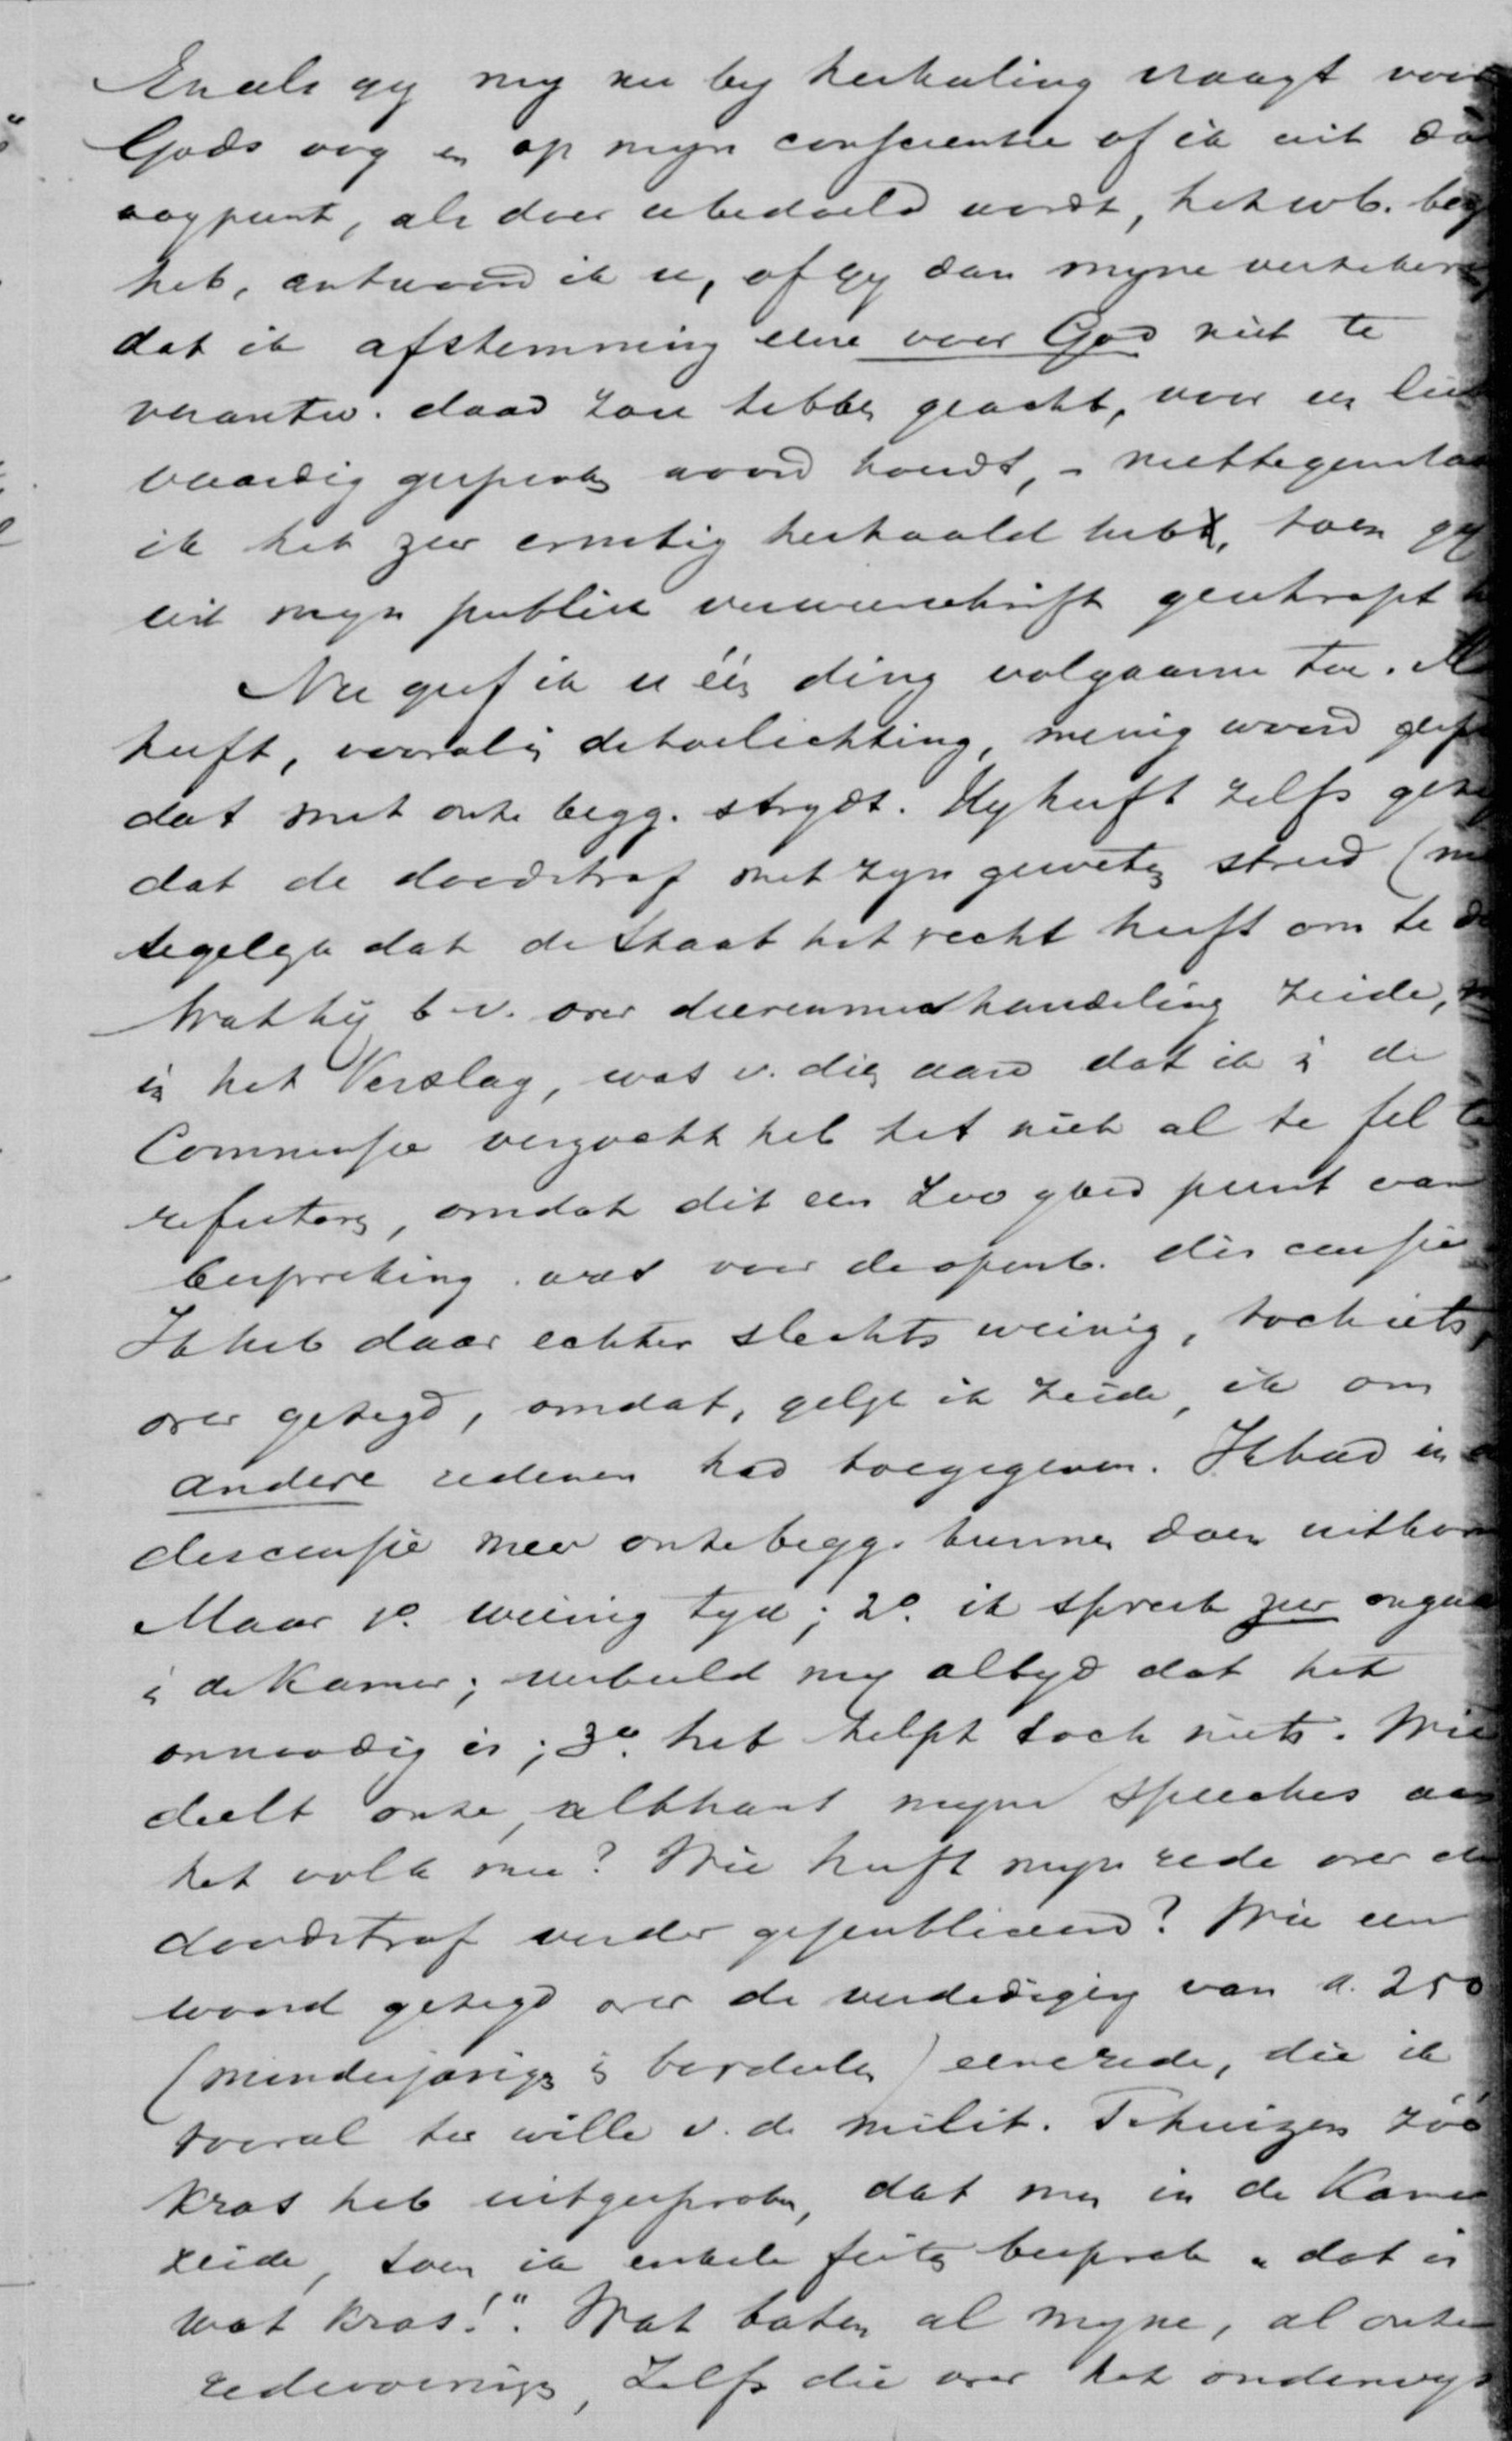 En als gy my nu by herhaling vraagt voor
Gods oog en op myn conscientie of ik uit
oogpunt, als door u bedoeld wordt, het wb.
heb, antwoord ik u, of gy dan myne
dat ik afstemming eene voor God niet te
verantw. daad zou hebben geacht, voor een
vaardig gesproken woord houdt, -
ik het zeer ernstig herhaald heb, toen gy
uit myn publiek
Nu geef ik u één ding volgaarne toe. M
heeft, vooral in de toelichting, menig woord
dat met onze begg. strydt. Hy heeft zelfs
dat de doodstraf met zyn geweten streed
tegelyk dat de Staat het recht heeft om te
Wat hij b.v. over dierenmishandeling zeide,
in het Verslag, was v. dien aard dat ik in de
Commissie verzocht heb het niet al te fel te
refuteren, omdat dit een zoo goed punt van
bespreking was voor de openb. discussie
Ik heb daar echter slechts weinig, toch iets,
over gezegd, omdat, gelyk ik zeide, ik om
andere redenen had toegegeven. Ik had in
discussie meer onze begg. kunnen doen
Maar 1º. weinig tyd; 2º. ik spreek zeer
in de Kamer; verbeeld my altyd dat het
onnoodig is; 3º. het helpt toch niets. Wie
deelt onze, althans myne speeches aan
het volk mee? Wie heeft myn rede over de
doodstraf verder gepubliceerd? Wie een
woord gezegd over de verdediging van a. 250
(minderjarigen in bordeelen) eene rede, die ik
vooral ter wille v. de milit. Tehuizen zóó
kras heb uitgesproken, dat men in de Kamer
zeide, toen ik enkele feiten besprak „dat is
wat kras!". Wat baten al myne, al onze
redevoeringen, zelfs die over het onderwys